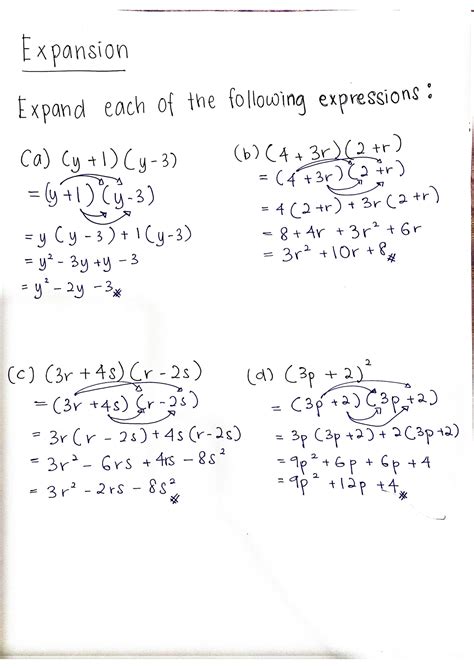 Expansion
Expand each of the following expressions:
(a) (y+1)(y-3)
= (y+1)(y-3)
= y(y-3)+1(y-3)
= y² - 3y + y - 3
= y² - 2y - 3 #
(b) (4+3r)(2+r)
= (4+3r)(2+r)
= 4(2+r) + 3r(2+r)
= 8+4r + 3r² + 6r
= 3r² + 10r + 8 #
(c) (3r+4s)(r-2s)
= (3r+4s)(r-2s)
= 3r(r - 2s) + 4s(r-2s)
= 3r² - 6rs + 4rs - 8s²
= 3r² - 2rs - 8s² #
(d) (3p + 2)²
= (3p+2)(3p+2)
= 3p(3p+2)+2(3p+2)
= 9p² + 6p + 6p + 4
= 9p² + 12p + 4 #